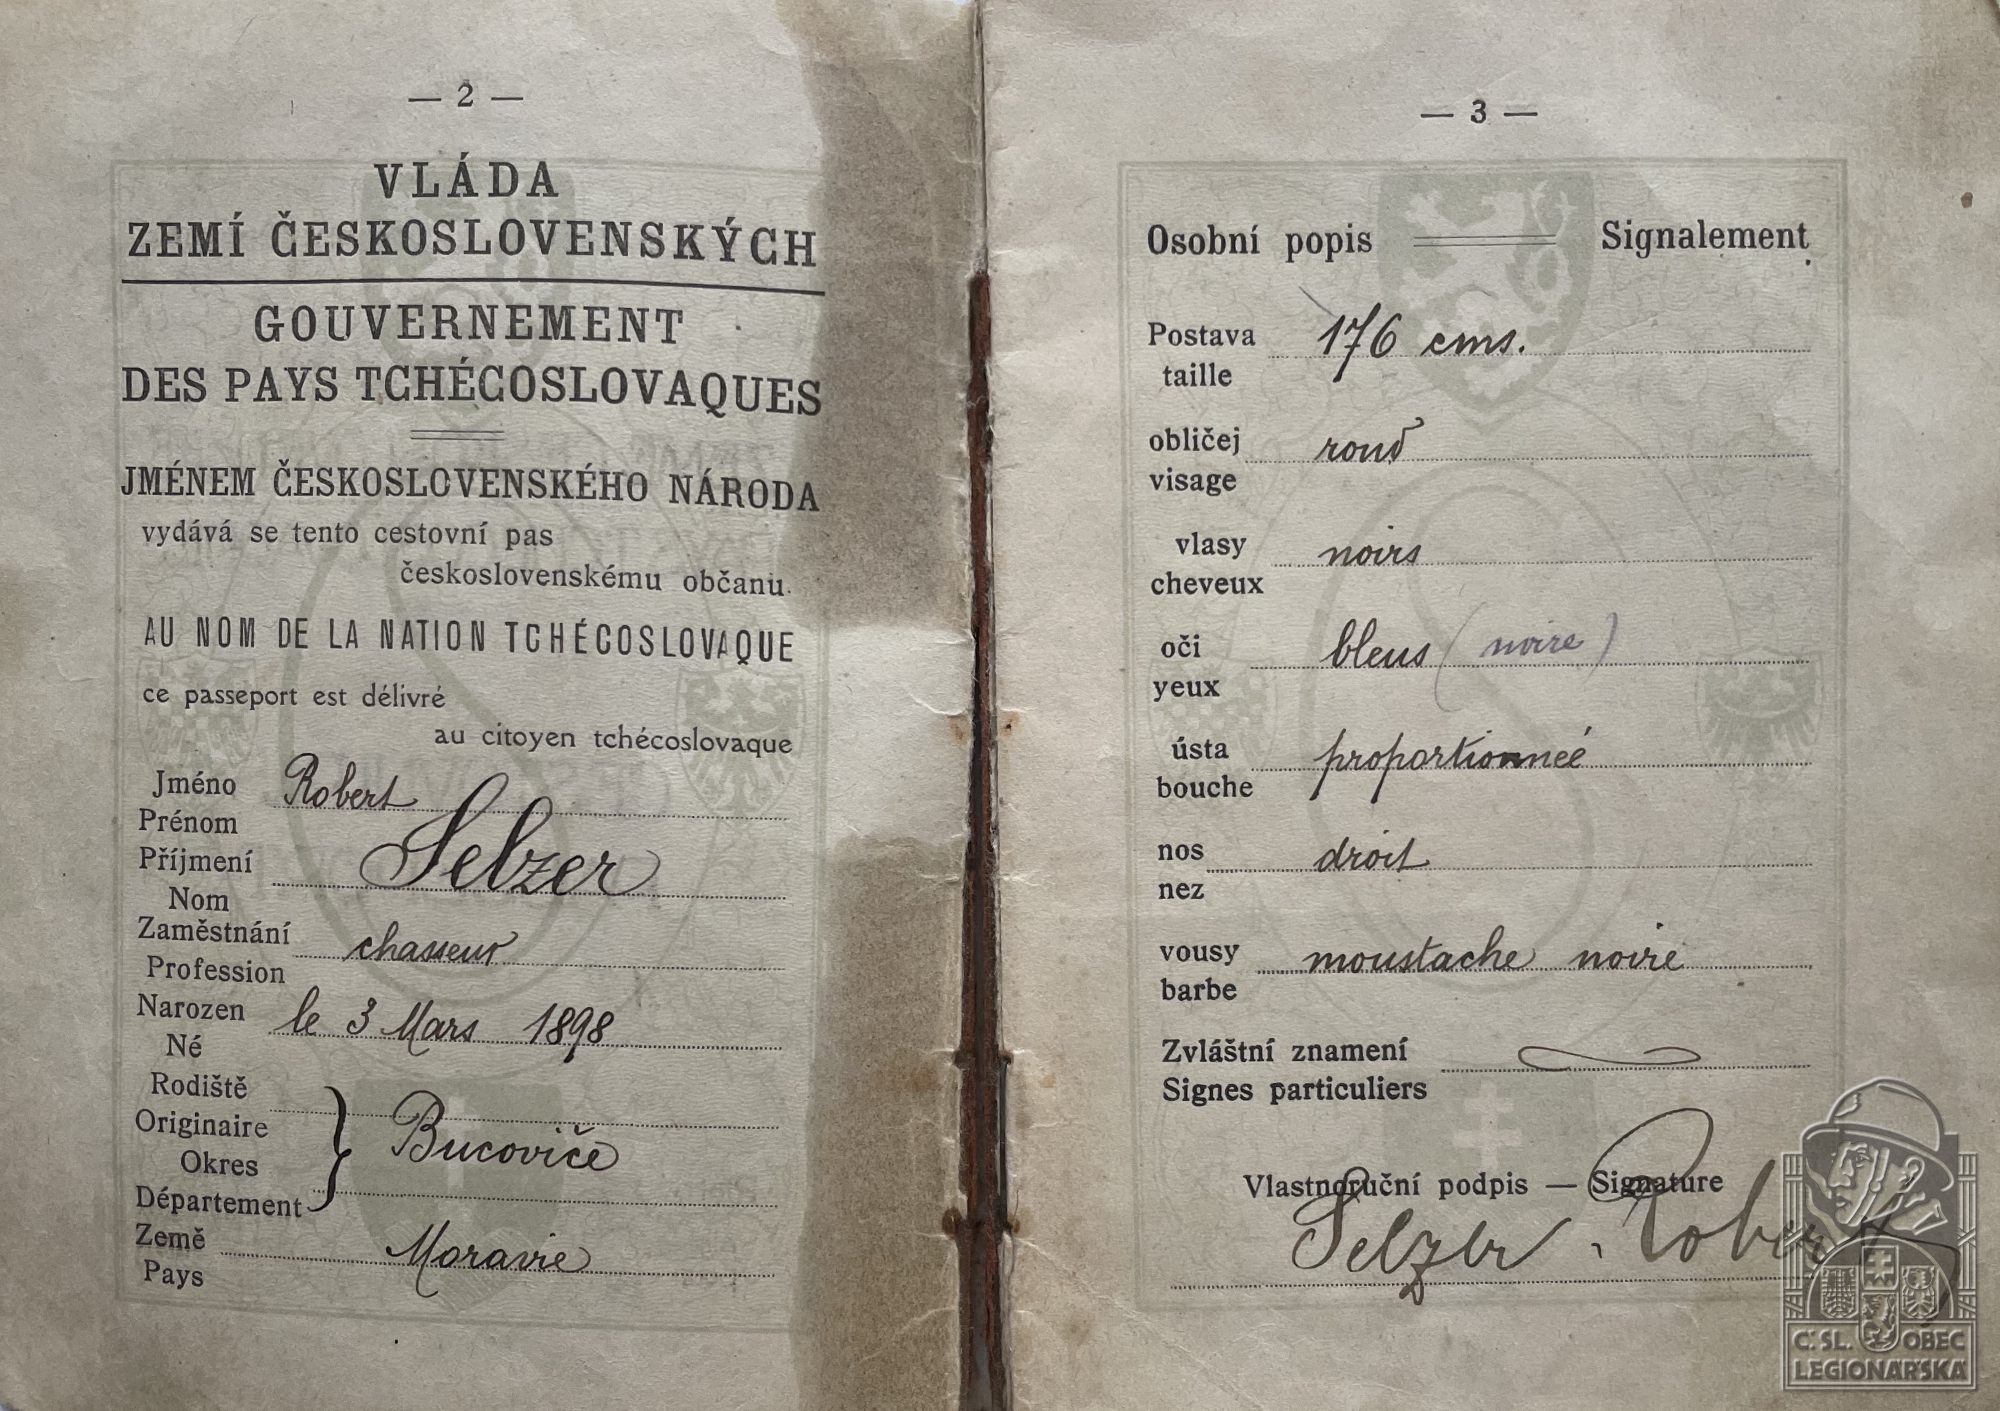 — 2 —
VLÁDA
ZEMÍ ČESKOSLOVENSKÝCH
GOUVERNEMENT
DES PAYS TCHÉCOSLOVAQUES
JMÉNEM ČESKOSLOVENSKÉHO NÁRODA
vydává se tento cestovní pas
československému občanu.
AU NOM DE LA NATION TCHÉCOSLOVAQUE
ce passeport est délivré
au citoyen tchécoslovaque
Jméno Robert
Prénom
Příjmení Selzer
Nom
Zaměstnání chasseur
Profession
Narozen le 3 Mars 1898
Né
Rodiště
Originaire Bucoviče
Okres
Département
Země Moravie
Pays
— 3 —
Osobní popis Signalement
Postava 176 cms.
taille
obličej rond
visage
vlasy noirs
cheveux
oči bleus (noire)
yeux
ústa proportionneé
bouche
nos droit
nez
vousy moustache noire
barbe
Zvláštní znamení
Signes particuliers
Vlastnoruční podpis — Signature
Selzer Robert
Č. SL. OBEC
LEGIONÁŘSKÁ